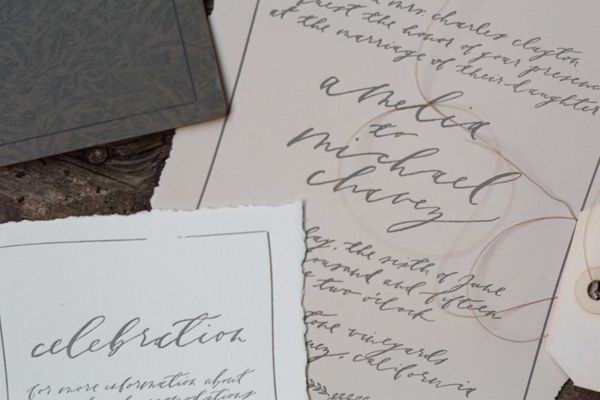 mrs. charles clayton
the honor of your presence
at the marriage of their daughter
amelia
to
michael
chavez
the sixth of june
and fifteen
two o'clock
vineyards
california
celebration
for more information about